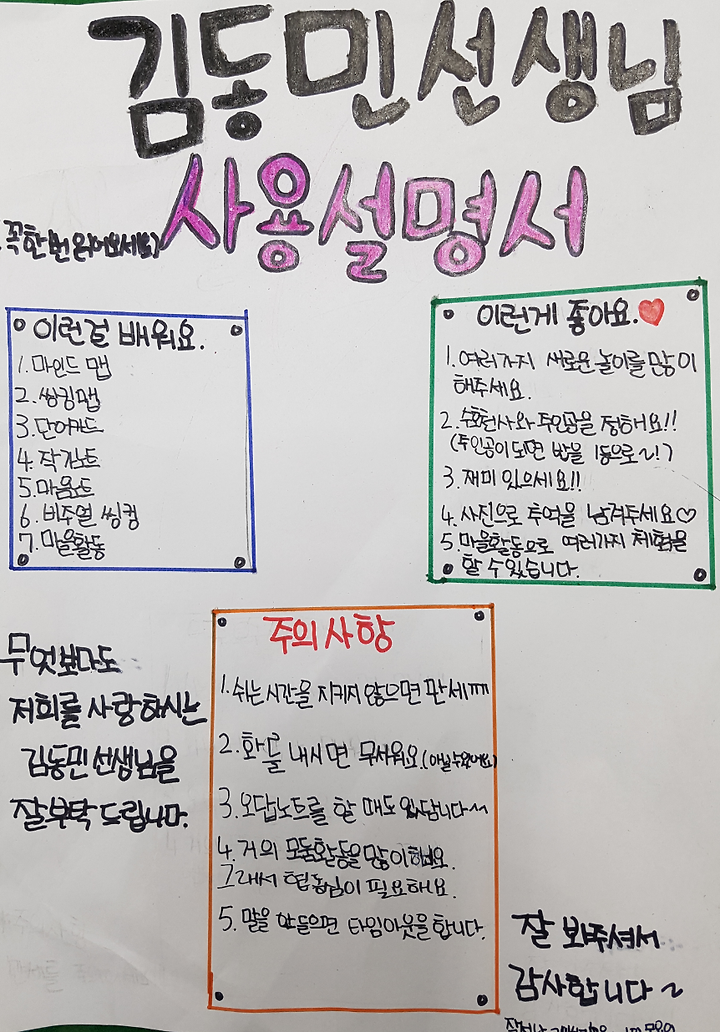 김동민선생님
사용설명서
꼭한번 읽어보세요!
이런걸 배워요.
1.마인드 맵
2.씽킹맵
3.단어카드
4.작가노트
5.마음노트
6.비주얼 씽킹
7.마을활동
이런게 좋아요.♥
1.여러가지 새로운 놀이를 많이
해주세요.
2.수호천사와 주인공을 정해요!!
(주인공이 되면 밥을 1등으로~!)
3.재미 있으세요!!
4.사진으로 추억을 남겨주세요♡
5.마을활동으로 여러가지 체험을
할 수 있습니다.
주의 사항
1.쉬는 시간을 지키지 않으면 만세ㅠㅠ
2.화를 내시면 무서워요.
3.오답노트를 할 때도 있답니다~
4.거의 모둠활동을 많이 해요.
그래서 협동심이 필요해요.
5.말을 안들으면 타임아웃을 합니다.
무엇보다도
저희를 사랑하시는
김동민선생님을
잘부탁 드립니다.
잘 봐주셔서
감사합니다~